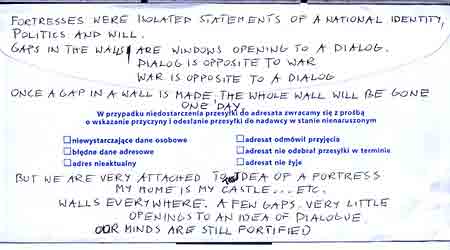 FORTRESSES WERE ISOLATED STATEMENTS OF A NATIONAL IDENTITY,
POLITICS AND WILL.
GAPS IN THE WALLS ARE WINDOWS OPENING TO A DIALOG.
DIALOG IS OPPOSITE TO WAR
WAR IS OPPOSITE TO A DIALOG
ONCE A GAP IN A WALL IS MADE THE WHOLE WALL WILL BE GONE
ONE DAY.
W przypadku niedostarczenia przesyłki do adresata zwracamy się z prośbą
o wskazanie przyczyny i odesłanie przesyłki do nadawcy w stanie nienaruszonym
niewystarczające dane osobowe
błędne dane adresowe
adres nieaktualny
adresat odmówił przyjęcia
adresat nie odebrał przesyłki w terminie
adresat nie żyje
BUT WE ARE VERY ATTACHED TO IDEA OF A FORTRESS
MY HOME IS MY CASTLE... ETC.
WALLS EVERYWHERE. A FEW GAPS. VERY LITTLE
OPENINGS TO AN IDEA OF DIALOGUE
OUR MINDS ARE STILL FORTIFIED